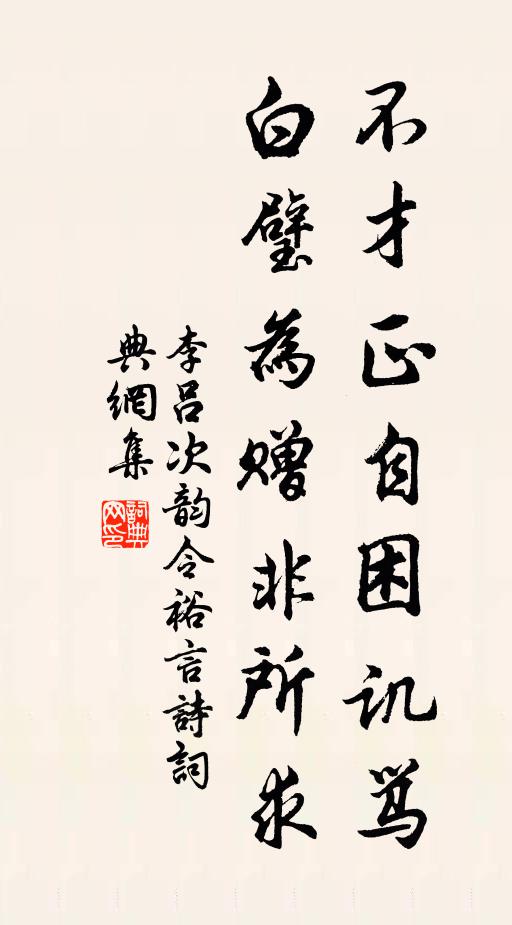 不才正自困讥骂
白璧為赠非所求
李吕次韵令裕言詩詞
典網集
詞典
网印